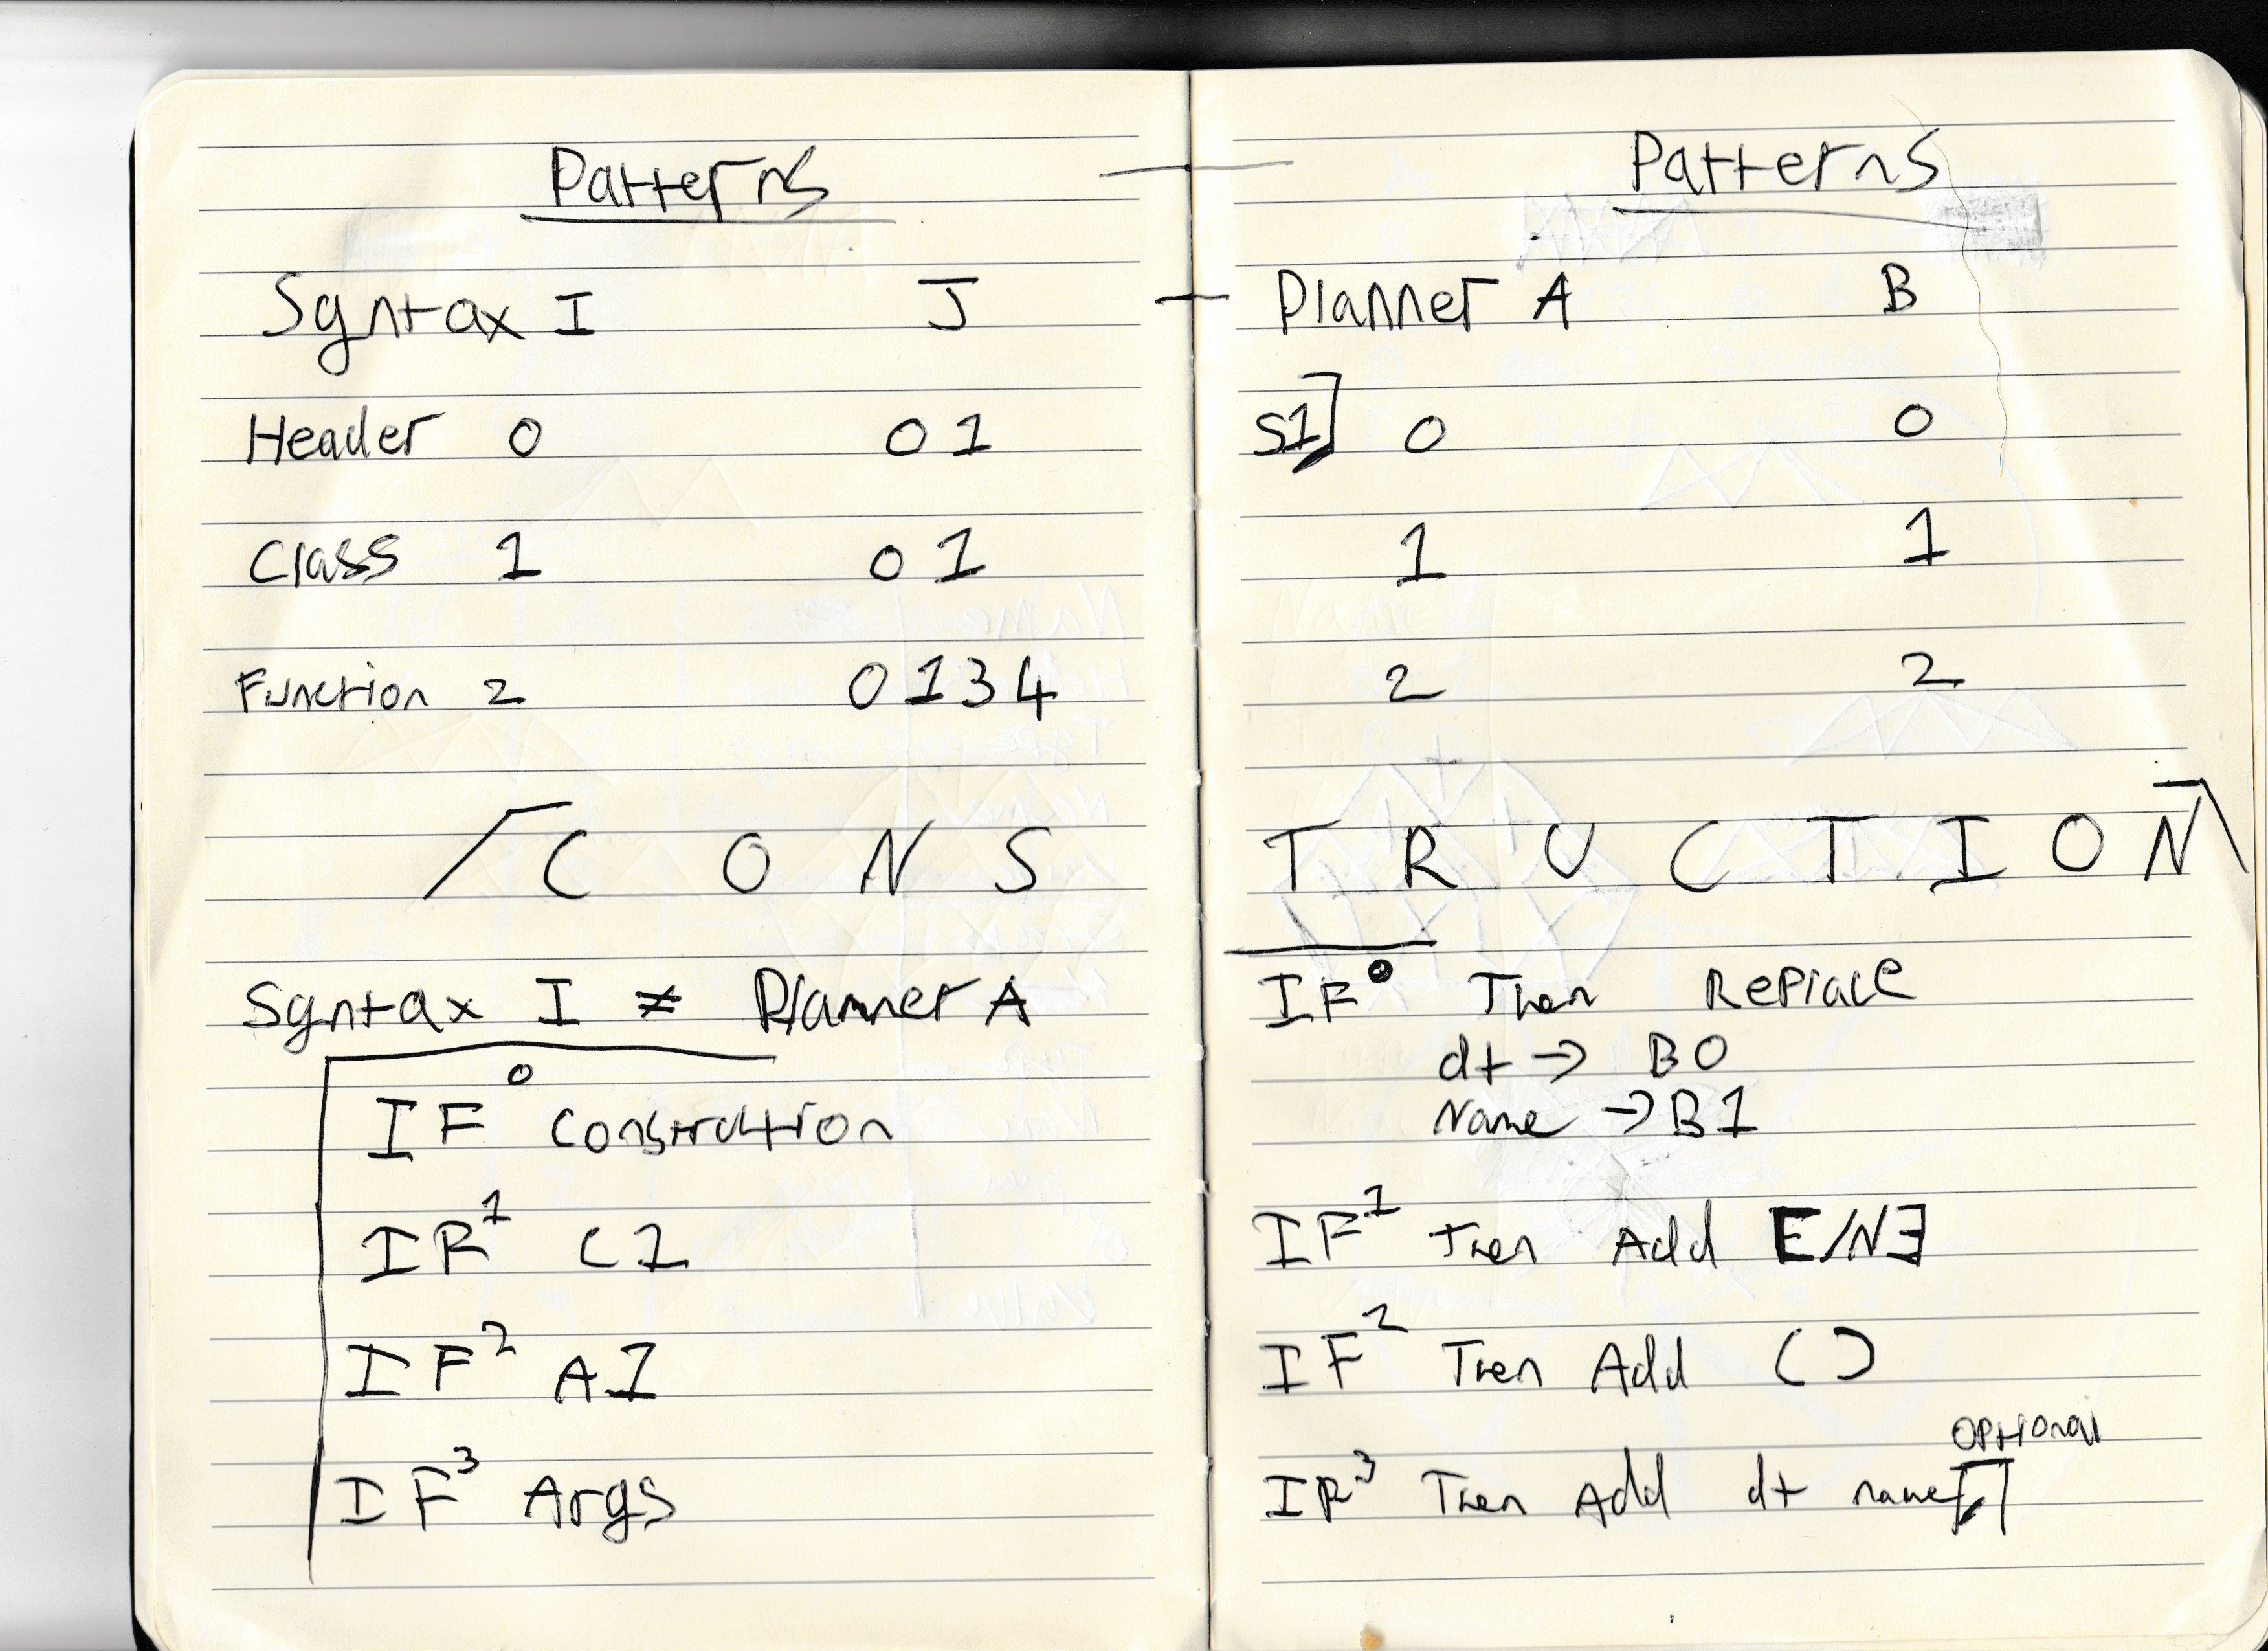 Patterns
Syntax I J
Header 0 0 1
Class 1 0 1
Function 2 0 1 3 4
C O N S
Syntax I ≠ Planner A
IF⁰ Construction
IF¹ C1
IF² A1
IF³ Args
Patterns
Planner A B
S1] 0 0
1 1
2 2
T R U C T I O N
IF⁰ Then Replace
dt → B0
Name → B1
IF¹ Then Add E/N∃
IF² Then Add ( )
OPtional
IF³ Then Add dt name